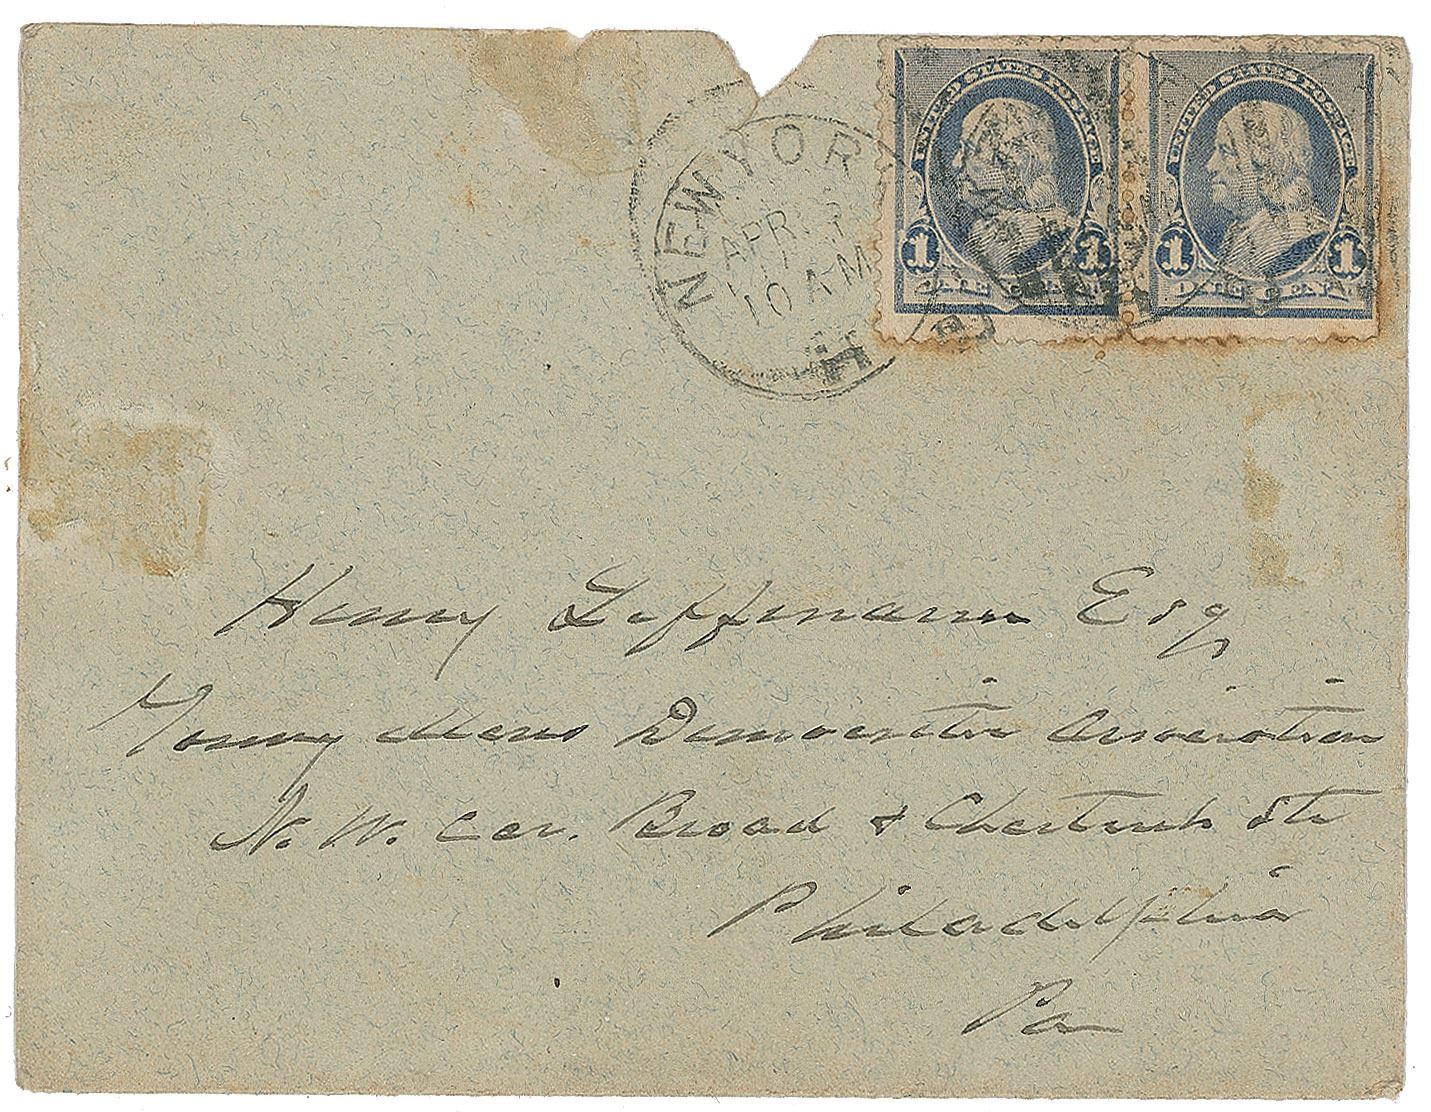 NEW YORK
APR 3
10 AM
H
UNITED STATES POSTAGE
1 1
ONE CENT
UNITED STATES POSTAGE
1 1
ONE CENT
Henry Leffmann Esq
Young Mens Democratic Association
N. W. Cor. Broad & Chestnut Sts
Philadelphia
Pa